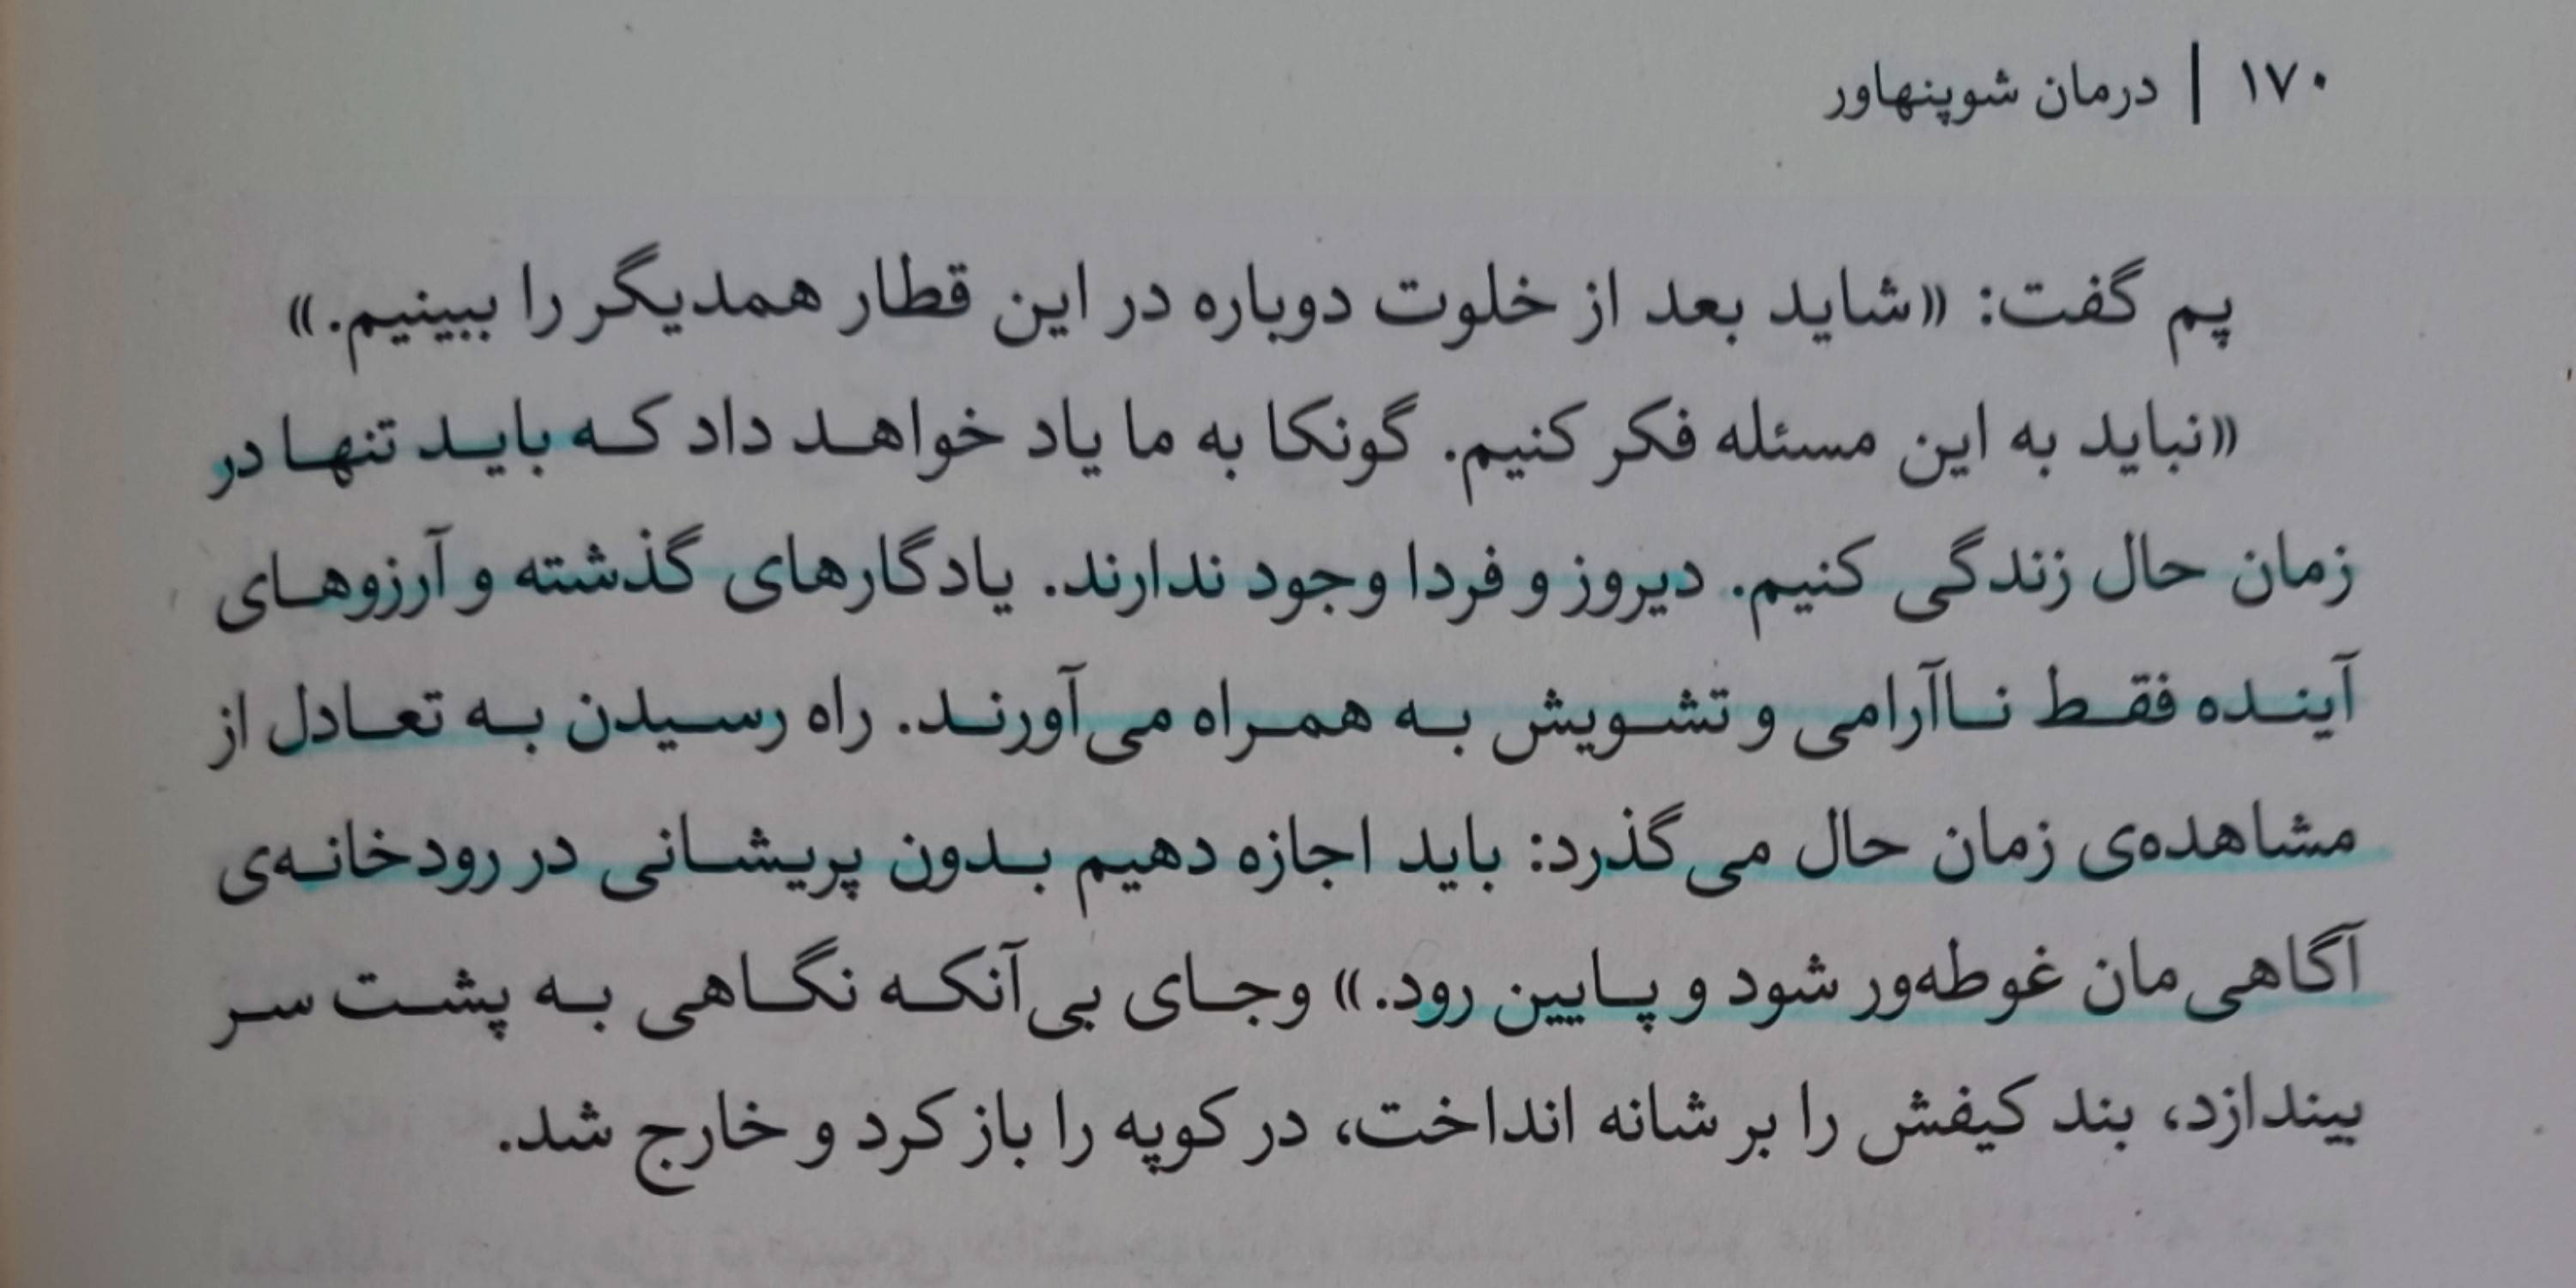 ۱۷۰ | درمان شوپنهاور
پم گفت: «شاید بعد از خلوت دوباره در این قطار همدیگر را ببینیم.»
«نباید به این مسئله فکر کنیم. گونکا به ما یاد خواهد داد که باید تنها در
زمان حال زندگی کنیم. دیروز و فردا وجود ندارند. یادگارهای گذشته و آرزوهای
آینده فقط ناآرامی و تشویش به همراه می‌آورند. راه رسیدن به تعادل از
مشاهده‌ی زمان حال می‌گذرد: باید اجازه دهیم بدون پریشانی در رودخانه‌ی
آگاهی‌مان غوطه‌ور شود و پایین رود.» وجای بی‌آنکه نگاهی به پشت سر
بیندازد، بند کیفش را بر شانه انداخت، در کوپه را باز کرد و خارج شد.